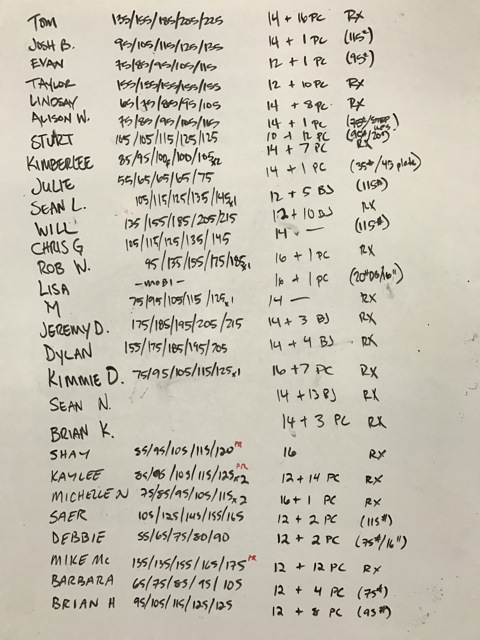 TOM 135/155/185/205/225 14 + 16 PC RX
JOSH B. 95/105/115/125/135 14 + 1 PC (115#)
EVAN 75/85/95/105/115 12 + 1 PC (95#)
TAYLOR 155/155/155/155/155 12 + 10 PC RX
LINDSAY 65/75/85/95/105 14 + 8 PC RX
ALISON W. 75/85/95/105/115 14 + 1 PC (75#/STEP UPS)
STUART 105/115/125/125 10 + 12 PC (95#/20")
KIMBERLEE 85/95/100/100/105x2 14 + 7 PC RX
JULIE 55/65/65/65/75 14 + 1 PC (35#/45 plate)
SEAN L. 105/115/125/135/145x1 12 + 5 BJ (115#)
WILL 135/155/185/205/215 12 + 10 BJ RX
CHRIS G 105/115/125/135/145 14 — (115#)
ROB W. 95/135/155/175/185x1 16 + 1 PC RX
LISA - MOBI - 16 + 1 PC (20#DB/16")
M 75/95/105/115/125x1 14 — RX
JEREMY D. 175/185/195/205/215 14 + 3 BJ RX
DYLAN 155/175/185/195/205 14 + 4 BJ RX
KIMMIE D. 75/95/105/115/125x1 16 + 7 PC RX
SEAN N. 14 + 13 BJ RX
BRIAN K. 14 + 3 PC RX
SHAY 85/95/105/115/120 PR 16 RX
KAYLEE 85/95/105/115/125x2 PR 12 + 14 PC RX
MICHELLE N 75/85/95/105/115x2 16 + 1 PC RX
SAER 105/125/145/155/165 12 + 2 PC (115#)
DEBBIE 55/65/75/80/90 12 + 2 PC (75#/16")
MIKE MC 135/135/155/165/175 PR 12 + 12 PC RX
BARBARA 65/75/85/95/105 12 + 4 PC (75#)
BRIAN H 95/105/115/125/125 12 + 8 PC (95#)